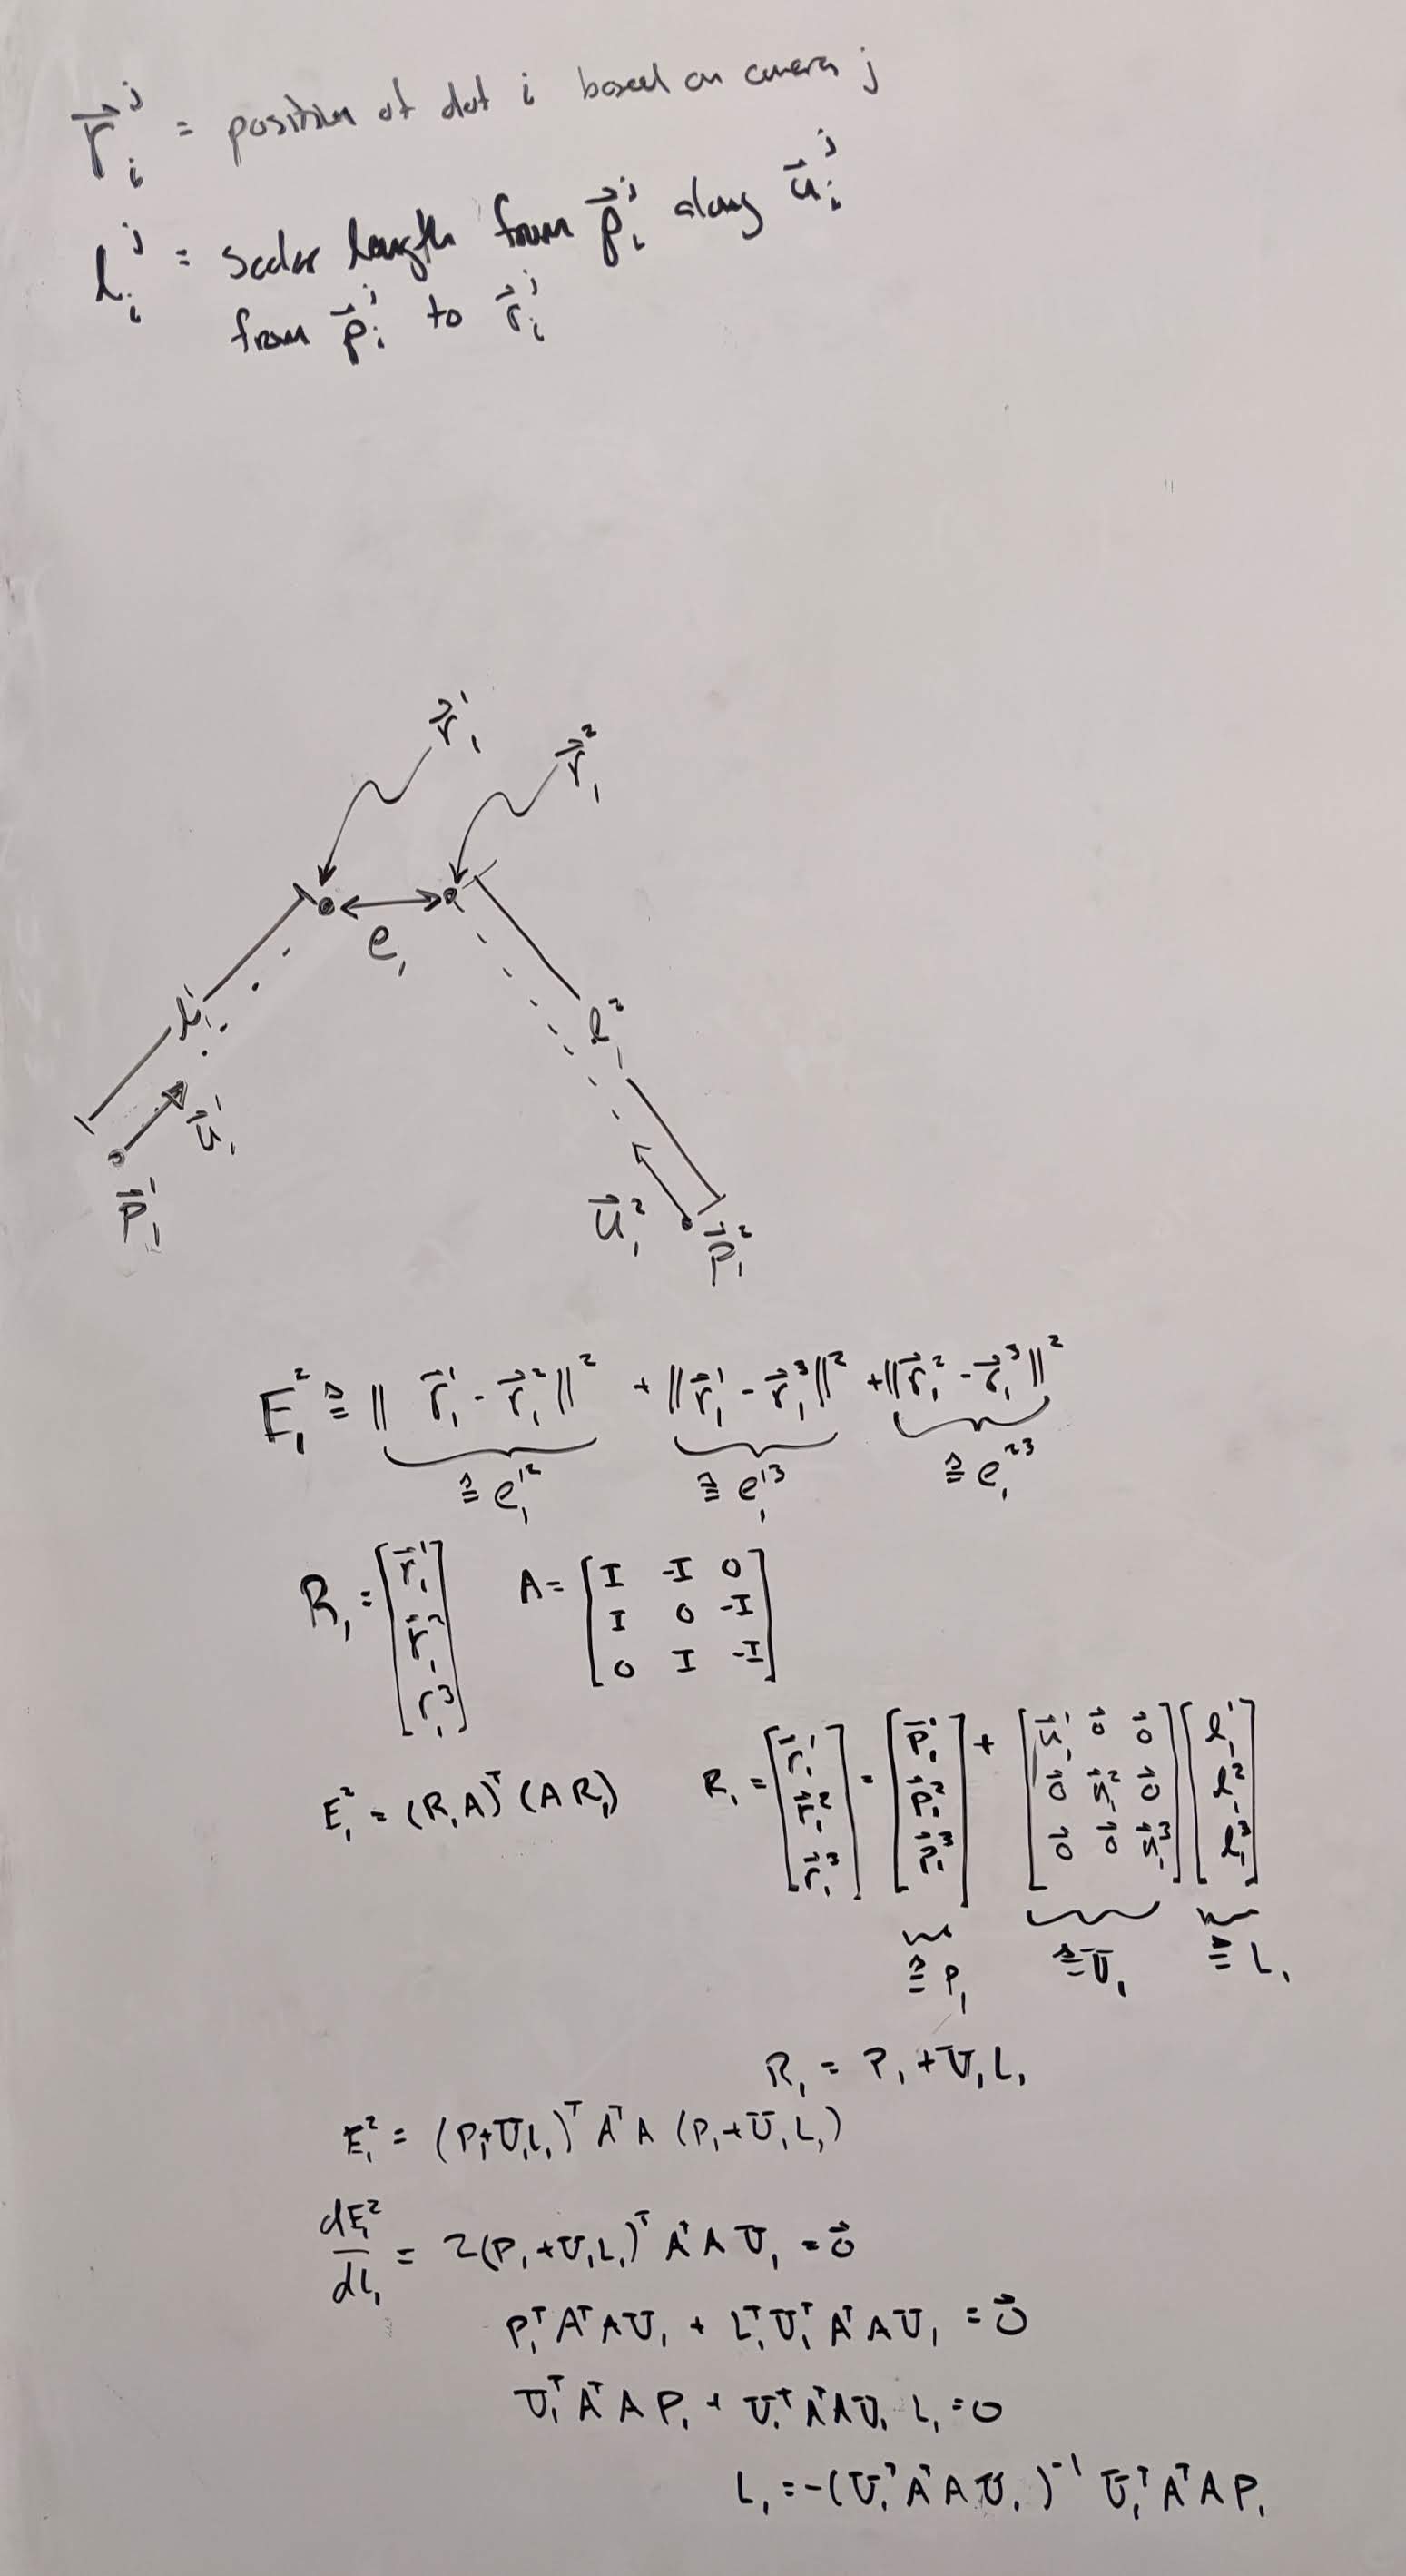 r⃗ᵢʲ = position of dot i based on camera j
lᵢʲ = scalar length from p⃗ᵢʲ along u⃗ᵢʲ
from p⃗ᵢʲ to r⃗ᵢʲ
r⃗₁¹
r⃗₁²
e₁
l₁¹
l₁²
u⃗₁¹
p⃗₁¹
u⃗₁²
p⃗₁²
E₁² ≙ ‖ r⃗₁¹ - r⃗₁² ‖² + ‖ r⃗₁¹ - r⃗₁³ ‖² + ‖ r⃗₁² - r⃗₁³ ‖²
≙ e₁¹² ≙ e₁¹³ ≙ e₁²³
R₁ = [r⃗₁¹; r⃗₁²; r₁³] A = [I -I 0; I 0 -I; 0 I -I]
E₁² = (R₁A)ᵀ(AR₁) R₁ = [r⃗₁¹; r⃗₁²; r⃗₁³] = [p⃗₁¹; p⃗₁²; p⃗₁³] + [u⃗₁¹ 0⃗ 0⃗; 0⃗ u⃗₁² 0⃗; 0⃗ 0⃗ u⃗₁³] [l₁¹; l₁²; l₁³]
≙ P₁ ≙ U₁ ≙ L₁
R₁ = P₁ + U₁L₁
E₁² = (P₁+U₁L₁)ᵀ AᵀA (P₁+U₁L₁)
dE₁²/dL₁ = 2(P₁+U₁L₁)ᵀ AᵀA U₁ = 0⃗
P₁ᵀAᵀAU₁ + L₁ᵀU₁ᵀAᵀAU₁ = 0⃗
U₁ᵀAᵀAP₁ + U₁ᵀAᵀAU₁ L₁ = 0
L₁ = -(U₁ᵀAᵀAU₁)⁻¹ U₁ᵀAᵀAP₁